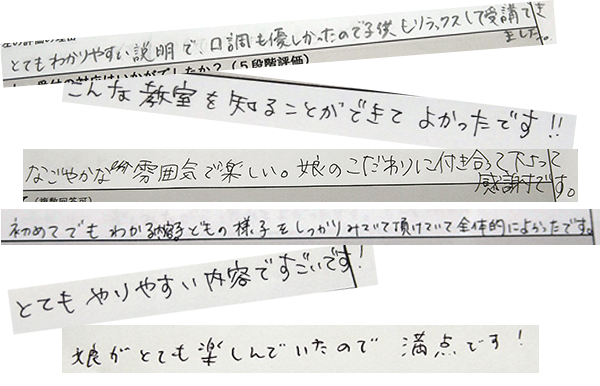 とてもわかりやすい説明で、口調も優しかったので子供もリラックスして受講でき
ました。
対応はいかがでしたか?（5段階評価）
こんな教室を知ることができてよかったです!!
なごやかな雰囲気で楽しい。娘のこだわりに付き合って下さって
感謝です。
（複数回答可）
初めてでもわかる内容 子どもの様子をしっかりみていて頂けていて全体的によかったです。
とてもやりやすい内容ですごいです!
娘がとても楽しんでいたので 満点です!